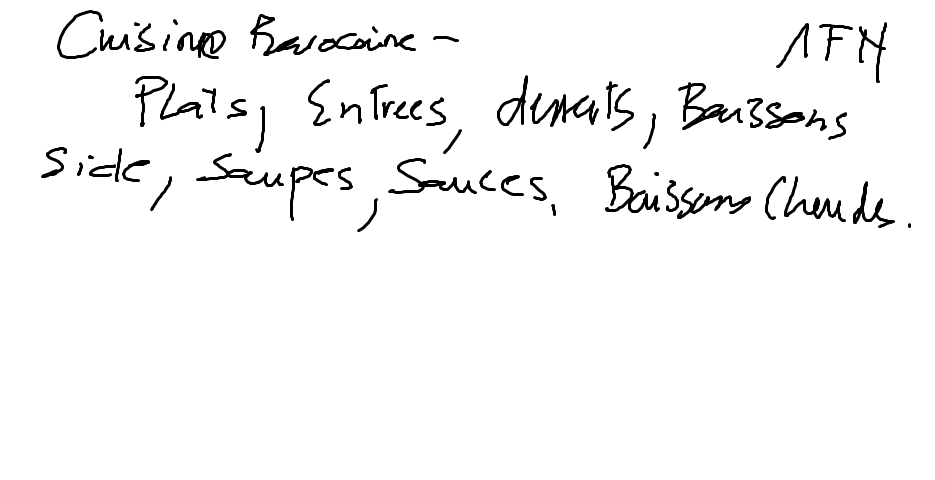 Cuisine Marocaine - AFN
Plats, Entrees, desserts, Boissons
Side, Soupes, Sauces, Boissons Chaudes.